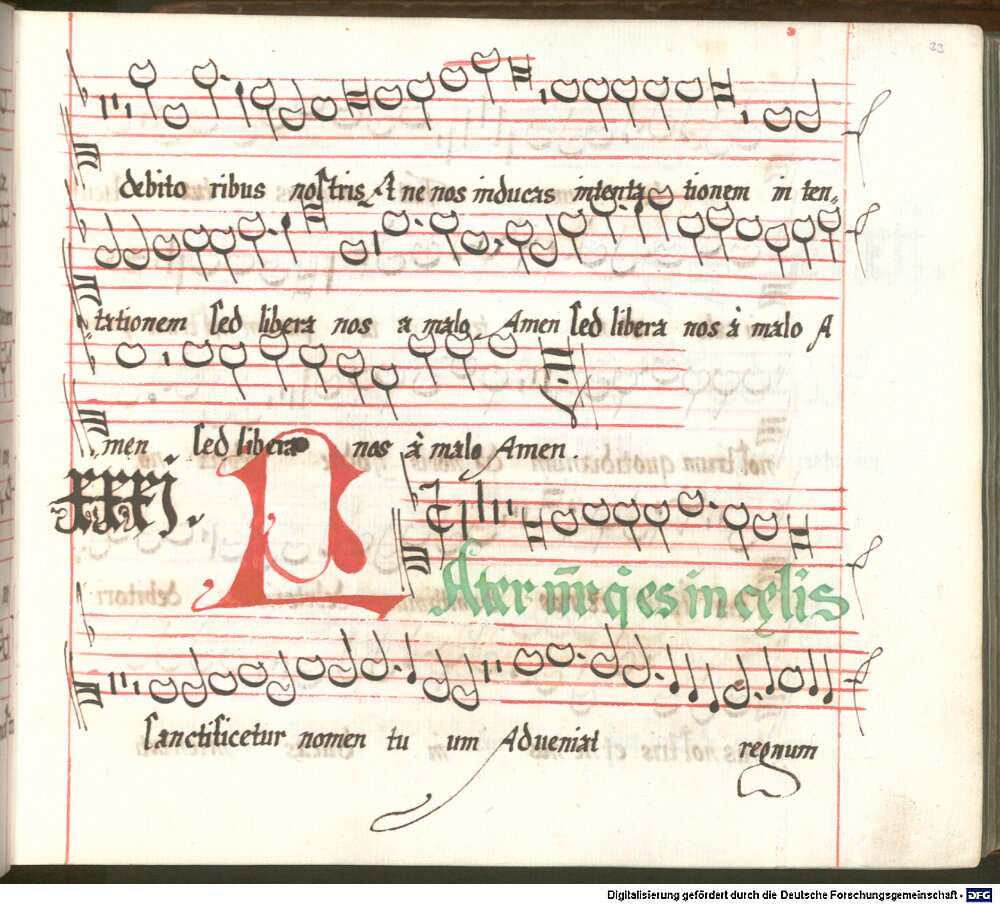 33
debito ribus nostris Et ne nos inducas intenta tionem in ten„
tationem sed libera nos a malo Amen sed libera nos à malo A
men sed libera nos à malo Amen.
xxxj.
PAter n̄r q̄ es in cȩlis
sanctificetur nomen tu um Adveniat regnum
Digitalisierung gefördert durch die Deutsche Forschungsgemeinschaft - DFG